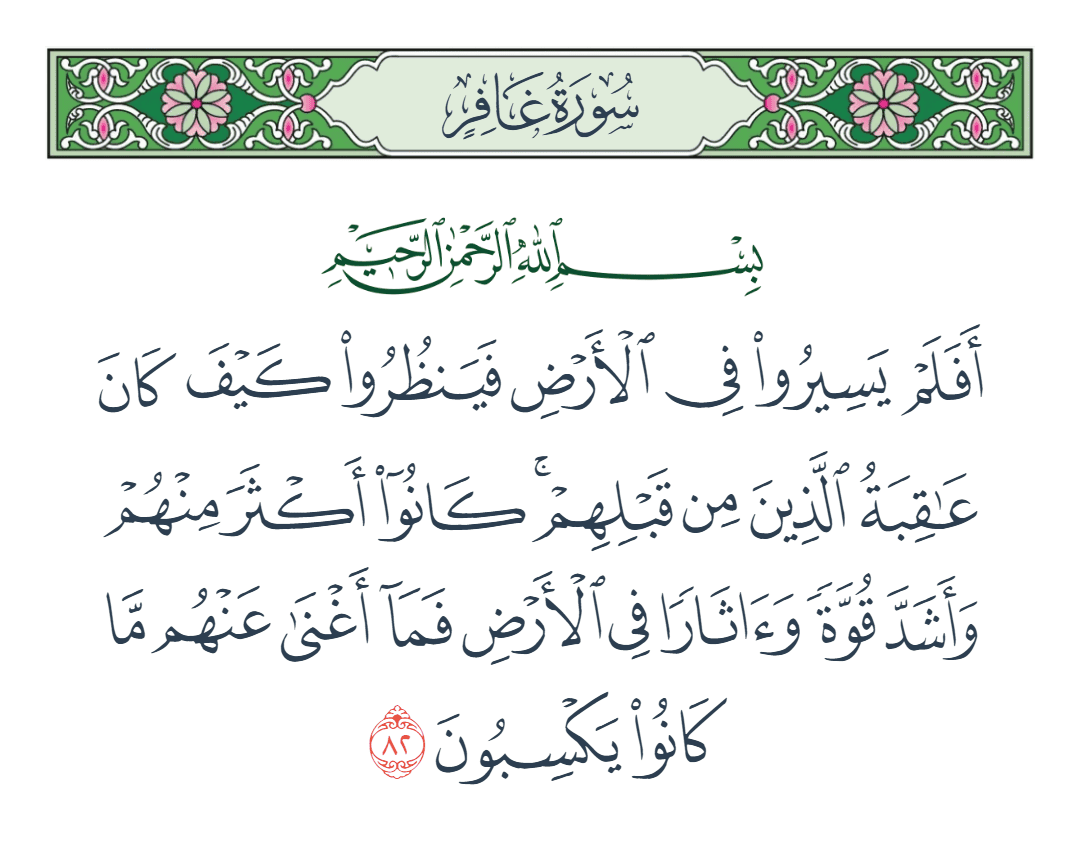 سُورَةُ غَافِرٍ
بِسْمِ ٱللَّهِ ٱلرَّحْمَٰنِ ٱلرَّحِيمِ
أَفَلَمْ يَسِيرُوا۟ فِى ٱلْأَرْضِ فَيَنظُرُوا۟ كَيْفَ كَانَ
عَـٰقِبَةُ ٱلَّذِينَ مِن قَبْلِهِمْ ۚ كَانُوٓا۟ أَكْثَرَ مِنْهُمْ
وَأَشَدَّ قُوَّةً وَءَاثَارًا فِى ٱلْأَرْضِ فَمَآ أَغْنَىٰ عَنْهُم مَّا
كَانُوا۟ يَكْسِبُونَ ٨٢